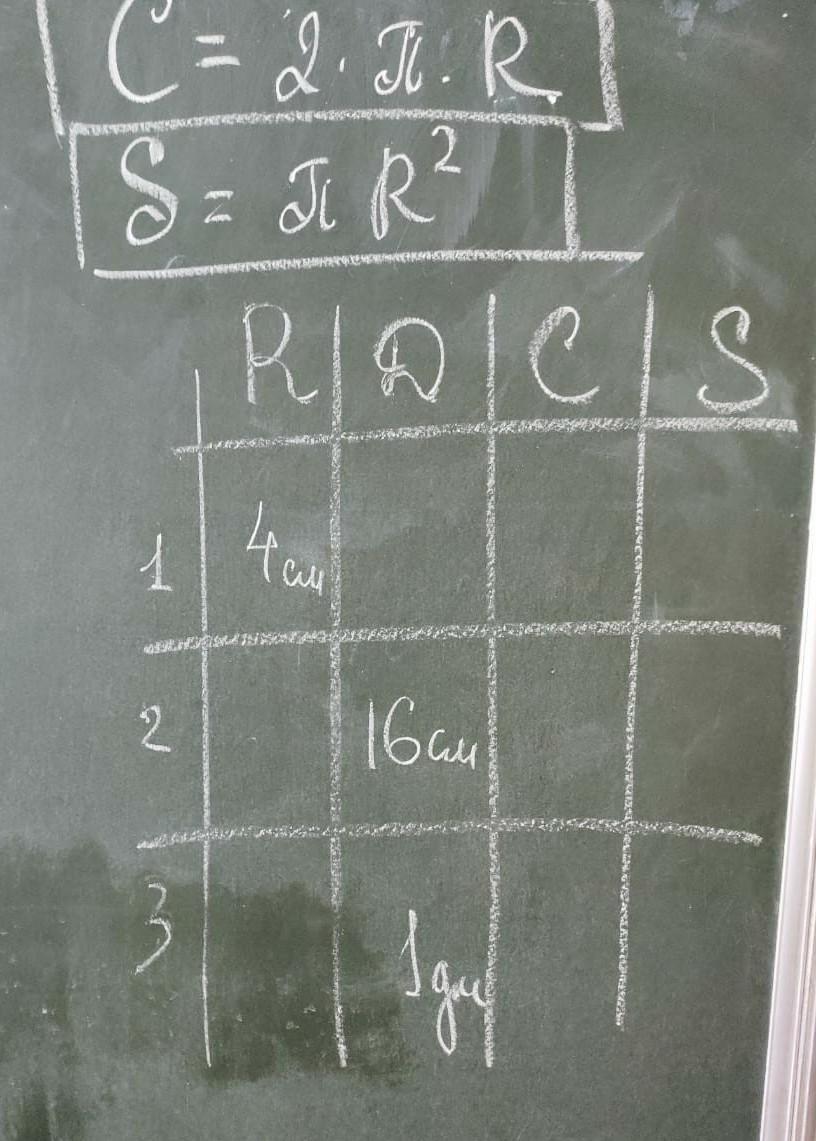 C = 2 · π · R
S = π R²
R D C S
1 4 см
2 16 см
3 1 дм